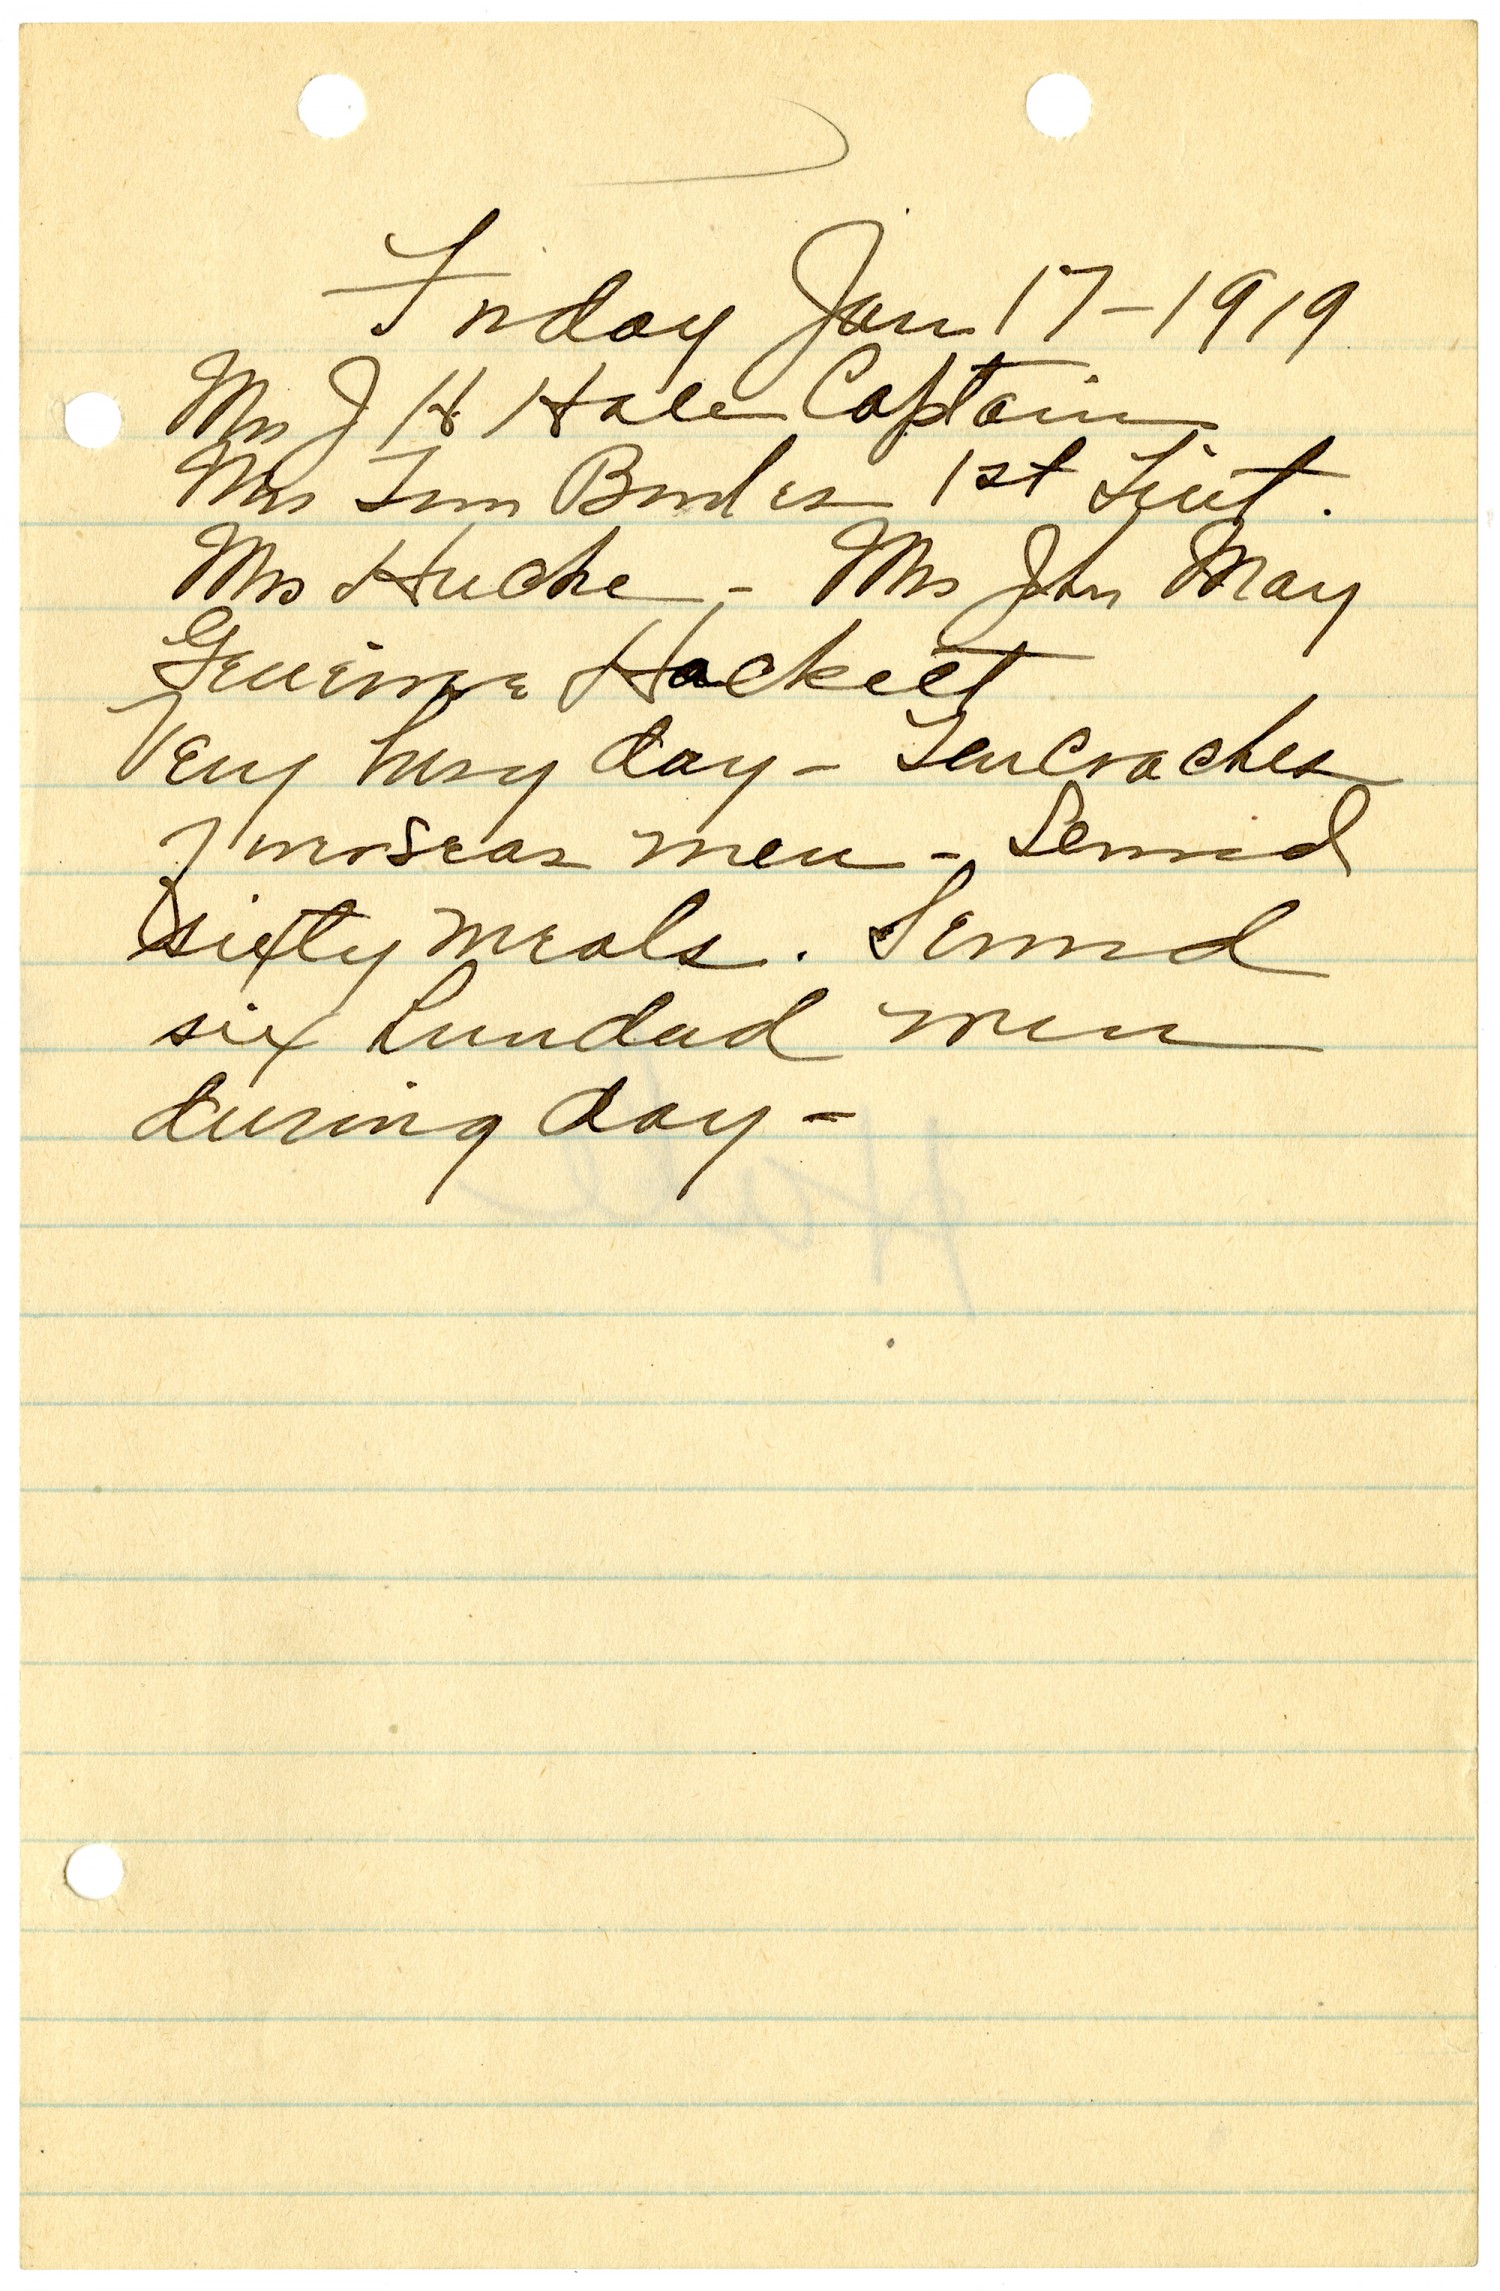 Friday Jan 17-1919
Mrs J H Hale Captain
Mrs Tom 1st Lieut.
Mrs Huche - Mrs John May
Hackett
Very busy day - Ten Coaches
of overseas men - Served
sixty meals. Served
six hundred men
during day -
Hale